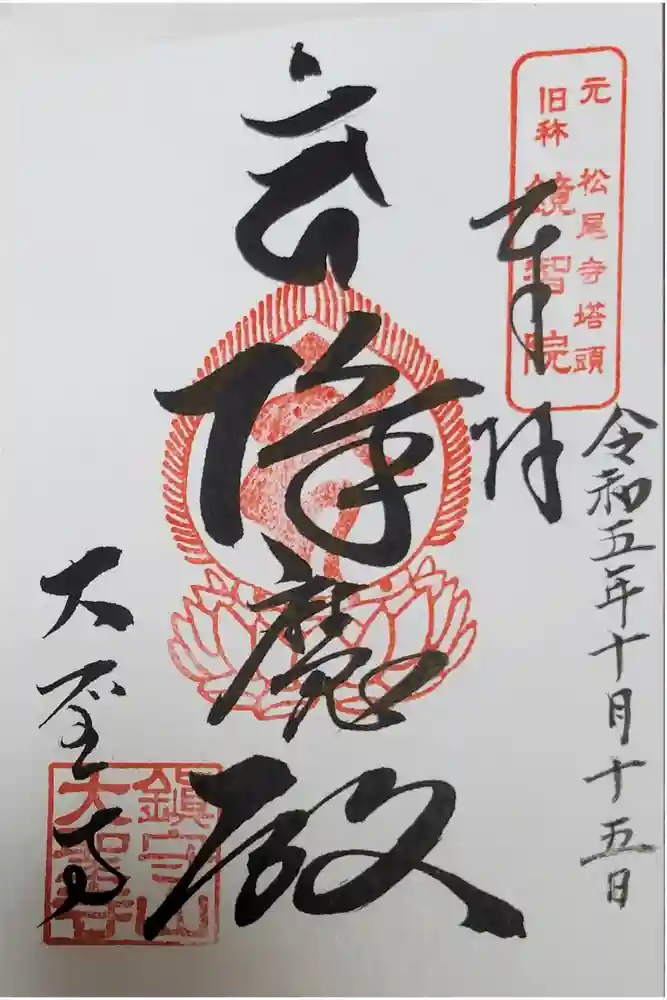 元 松尾寺塔頭
旧称 鏡智院
奉拝
令和五年十月十五日
降魔殿
大聖寺
鎭守山
大聖寺